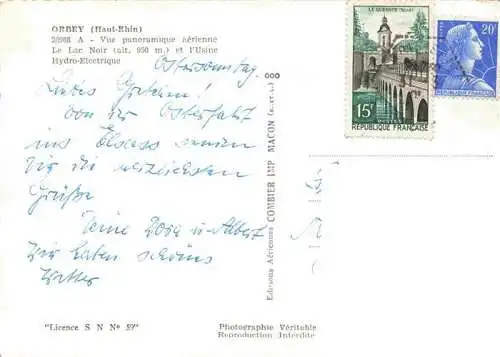 ORBEY (Haut-Rhin)
26968 A - Vue panoramique aérienne
Le Lac Noir (alt. 950 m.) et l'Usine
Hydro-Electrique
Ostersonntag.
Liebes Gretchen!
Von der Osterfahrt
ins Elsass senden
Dir die herzlichsten
Grüße
Deine Dora u. Albert
Wir haben schönes
Wetter
"Licence S N N° 59"
Photographie Véritable
Reproduction Interdite
Editions Aériennes COMBIER IMP. MACON
LE QUESNOY
15F
POSTES
REPUBLIQUE FRANÇAISE
20F
REPUBLIQUE FRANÇAISE